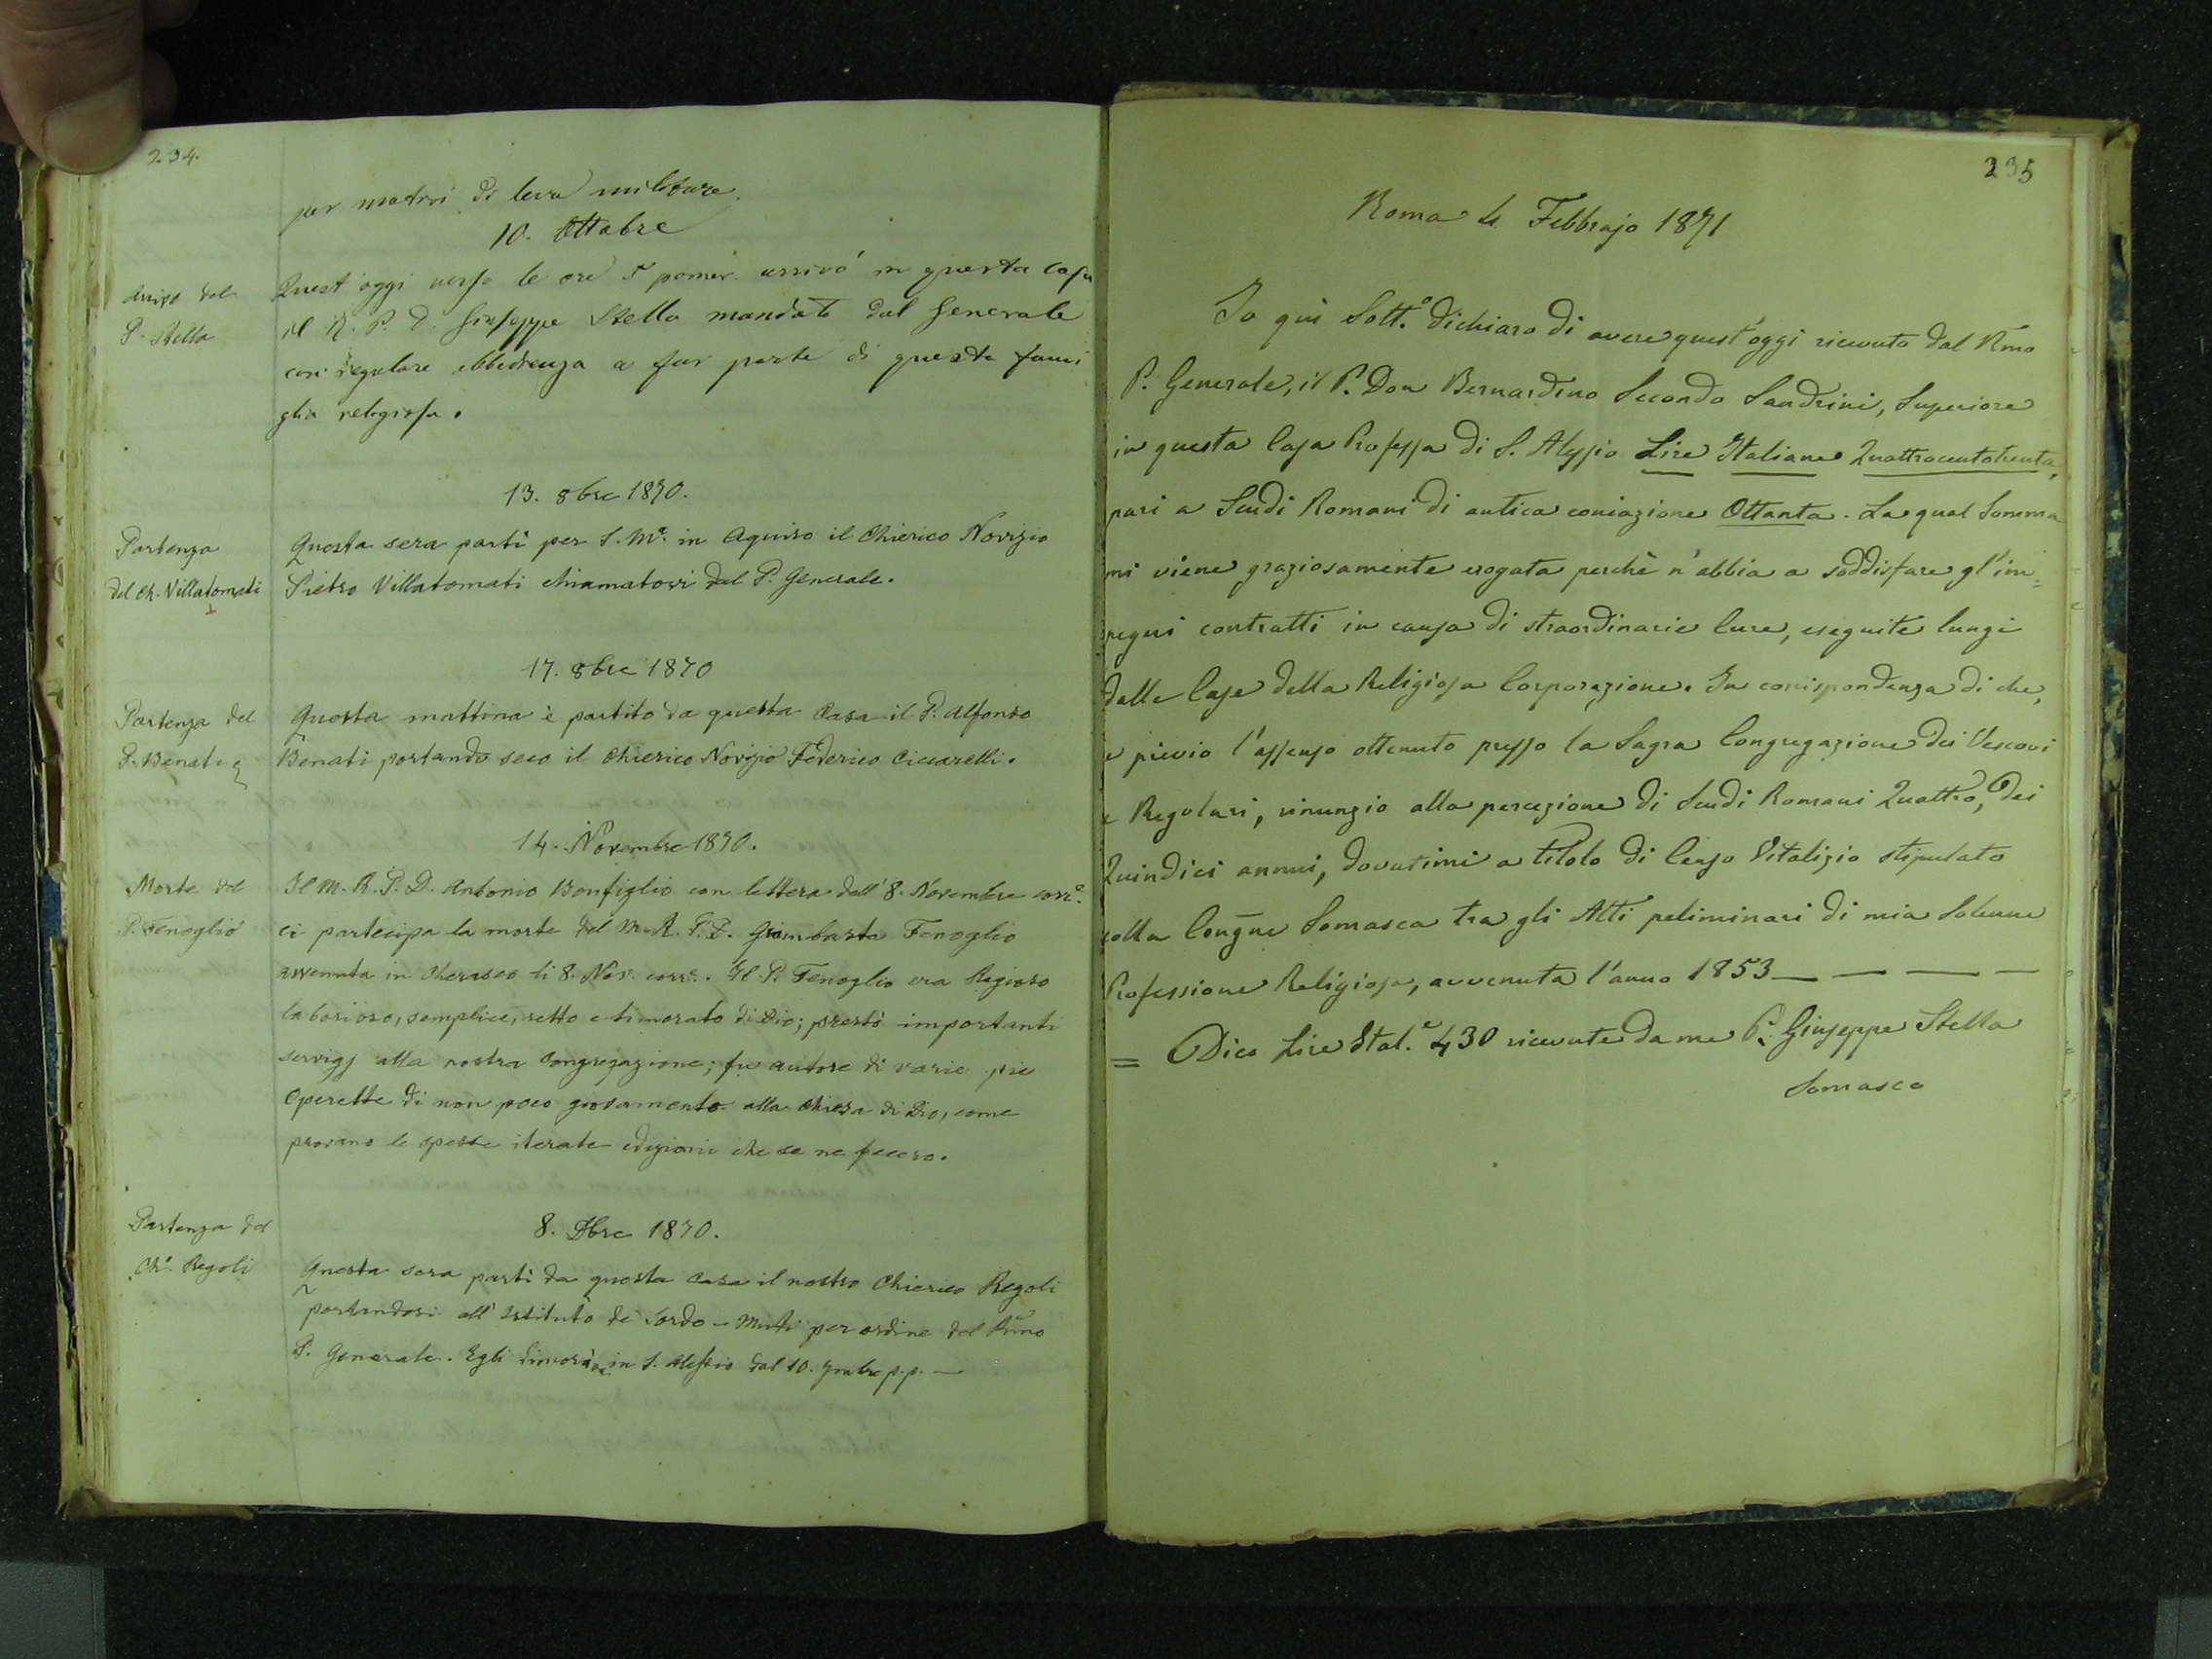 234.
per motivi di leva militare.
10. Ottobre
Arrivo del
P. Stella
Quest'oggi verso le ore 5 pomer. arrivò in questa Casa
il R. P. D. Giuseppe Stella mandato dal Generale
con regolare obbedienza a far parte di questa fami
glia religiosa.
13. 8bre 1870.
Partenza
del Ch. Villatomati
Questa sera partì per S. Mª. in Aquiro il Chierico Novizio
Pietro Villatomati chiamatovi dal P. Generale.
17. 8bre 1870
Partenza del
P. Benati
Questa mattina è partito da questa Casa il P. Alfonso
Benati portando seco il Chierico Novizio Federico Ciccarelli.
14. Novembre 1870.
Morte del
P. Fenoglio
Il M. R. P. D. Antonio Bonfiglio con lettera dell'8. Novembre corrᵉ.
ci partecipa la morte del M. R. P. D. Giambatta Fenoglio
avvenuta in Cherasco li 8. Nov. corrᵉ. Il P. Fenoglio era Regioso
laborioso, semplice, retto e timorato di Dio; prestò importanti
servigj alla nostra Congregazione; fu autore di varie pie
Operette di non poco giovamento alla Chiesa di Dio, come
provano le spesse iterate edizioni che se ne fecero.
8. Xbre 1870.
Partenza del
Chº. Regoli
Questa sera partì da questa Casa il nostro Chierico Regoli
portandosi all'Istituto de' Sordo-Muti per ordine del Rmo
P. Generale. Egli dimorava in S. Alessio dal 10. 7mbre p.p. —
235
Roma 4 Febbrajo 1871
Io qui Sott.º dichiaro di avere quest'oggi ricevuto dal Rmo
P. Generale, il P. Don Bernardino Secondo Sandrini, Superiore
in questa Casa Professa di S. Alessio Lire Italiane Quattrocentotrenta,
pari a Scudi Romani di antica coniazione Ottanta. La qual Somma
mi viene graziosamente erogata perchè n'abbia a soddisfare gl'im=
pegni contratti in causa di straordinarie Cure, eseguite lungi
dalle Case della Religiosa Corporazione. In corrispondenza di che,
e previo l'assenso ottenuto presso la Sagra Congregazione dei Vescovi
e Regolari, rinunzio alla percezione di Scudi Romani Quattro, dei
Quindici annui, dovutimi a titolo di Censo Vitalizio stipulato
colla Congne Somasca tra gli Atti peliminari di mia Solenne
Professione Religiosa, avvenuta l'anno 1853 — — — —
= Dico Lire Ital.ᵉ 430 ricevute da me P. Giuseppe Stella
Somasco